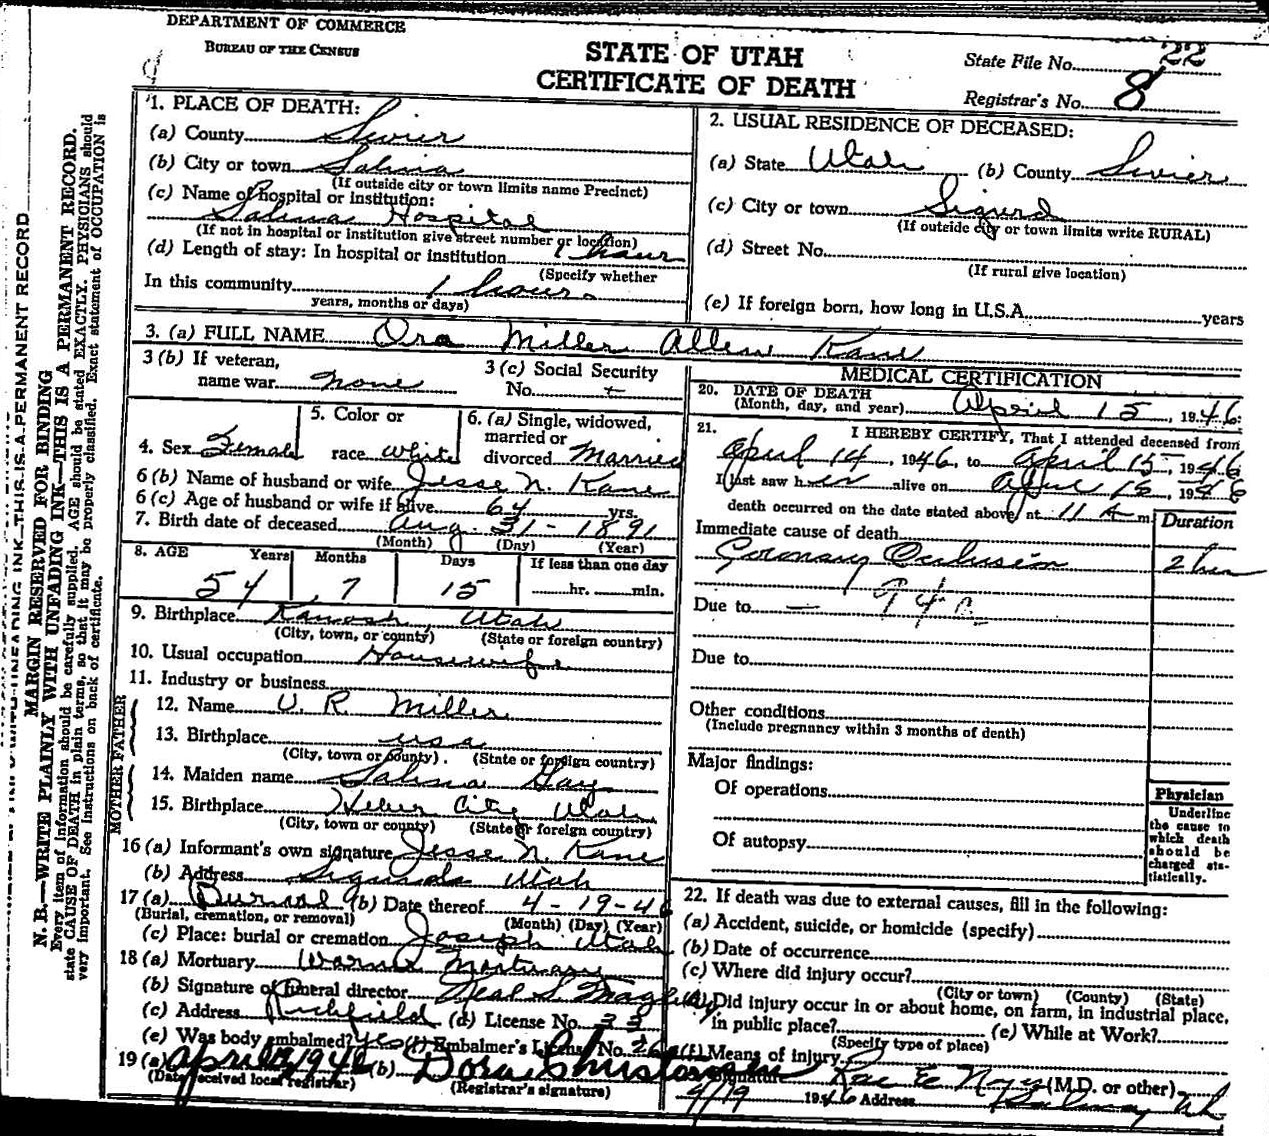 DEPARTMENT OF COMMERCE
BUREAU OF THE CENSUS
STATE OF UTAH
CERTIFICATE OF DEATH
State File No. 22
Registrar's No. 8
MARGIN RESERVED FOR BINDING
N. B.—WRITE PLAINLY WITH UNFADING INK—THIS IS A PERMANENT RECORD.
Every item of information should be carefully supplied. AGE should be stated EXACTLY. PHYSICIANS should
state CAUSE OF DEATH in plain terms, so that it may be properly classified. Exact statement of OCCUPATION is
very important. See instructions on back of certificate.
1. PLACE OF DEATH:
(a) County Sevier
(b) City or town Salina
(If outside city or town limits name Precinct)
(c) Name of hospital or institution:
Salina Hospital
(If not in hospital or institution give street number or location)
(d) Length of stay: In hospital or institution 1 hour
(Specify whether
In this community 1 hour
years, months or days)
2. USUAL RESIDENCE OF DECEASED:
(a) State Utah (b) County Sevier
(c) City or town Sigurd
(If outside city or town limits write RURAL)
(d) Street No.
(If rural give location)
(e) If foreign born, how long in U.S.A. years
3. (a) FULL NAME Ora Miller Allen Kane
3 (b) If veteran,
name war none
3 (c) Social Security
No.
4. Sex Female
5. Color or
race White
6. (a) Single, widowed,
married or
divorced Married
6 (b) Name of husband or wife Jesse N. Kane
6 (c) Age of husband or wife if alive 64 yrs.
7. Birth date of deceased Aug. 31 - 1891
(Month) (Day) (Year)
8. AGE Years Months Days If less than one day
54 7 15 hr. min.
9. Birthplace Kanosh, Utah
(City, town, or county) (State or foreign country)
10. Usual occupation Housewife
11. Industry or business
FATHER
12. Name U. R. Miller
13. Birthplace usa
(City, town or county). (State or foreign country)
MOTHER
14. Maiden name Salina Gay
15. Birthplace Heber City Utah
(City, town or county) (State or foreign country)
16 (a) Informant's own signature Jesse N. Kane
(b) Address Utah
17 (a) Burial (b) Date thereof 4-19-46
(Burial, cremation, or removal) (Month) (Day) (Year)
(c) Place: burial or cremation Joseph Utah
18 (a) Mortuary Mortuary
(b) Signature of funeral director Neal S.
(c) Address Richfield (d) License No. 33
(e) Was body embalmed? yes (f) Embalmer's License No.
19 (a) April 1946 (b) Dora Christensen
(Date received local registrar) (Registrar's signature)
MEDICAL CERTIFICATION
20. DATE OF DEATH
(Month, day, and year) April 15, 1946:
21. I HEREBY CERTIFY, That I attended deceased from
April 14, 1946, to April 15, 1946
I last saw her alive on April 15, 1946
death occurred on the date stated above, at 11 A m.
Immediate cause of death Duration
Coronary Occlusion 2 hrs
Due to — 94a
Due to
Other conditions
(Include pregnancy within 3 months of death)
Major findings:
Of operations
Of autopsy
Physician
Underline
the cause to
which death
should be
charged sta-
tistically.
22. If death was due to external causes, fill in the following:
(a) Accident, suicide, or homicide (specify)
(b) Date of occurrence
(c) Where did injury occur?
(City or town) (County) (State)
(d) Did injury occur in or about home, on farm, in industrial place,
in public place? (e) While at Work?
(Specify type of place)
(f) Means of injury
Signature Rae E Noyes (M.D. or other)
4/19 1946 Address Salina, Ut